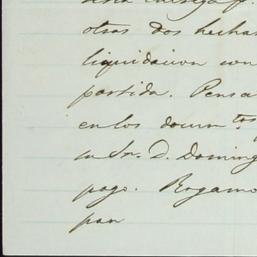 otras dos hechas
liquidacion con
partida. Pensa
en los docum.tos
su Sr. D. Doming
pago. Rogamo
pan